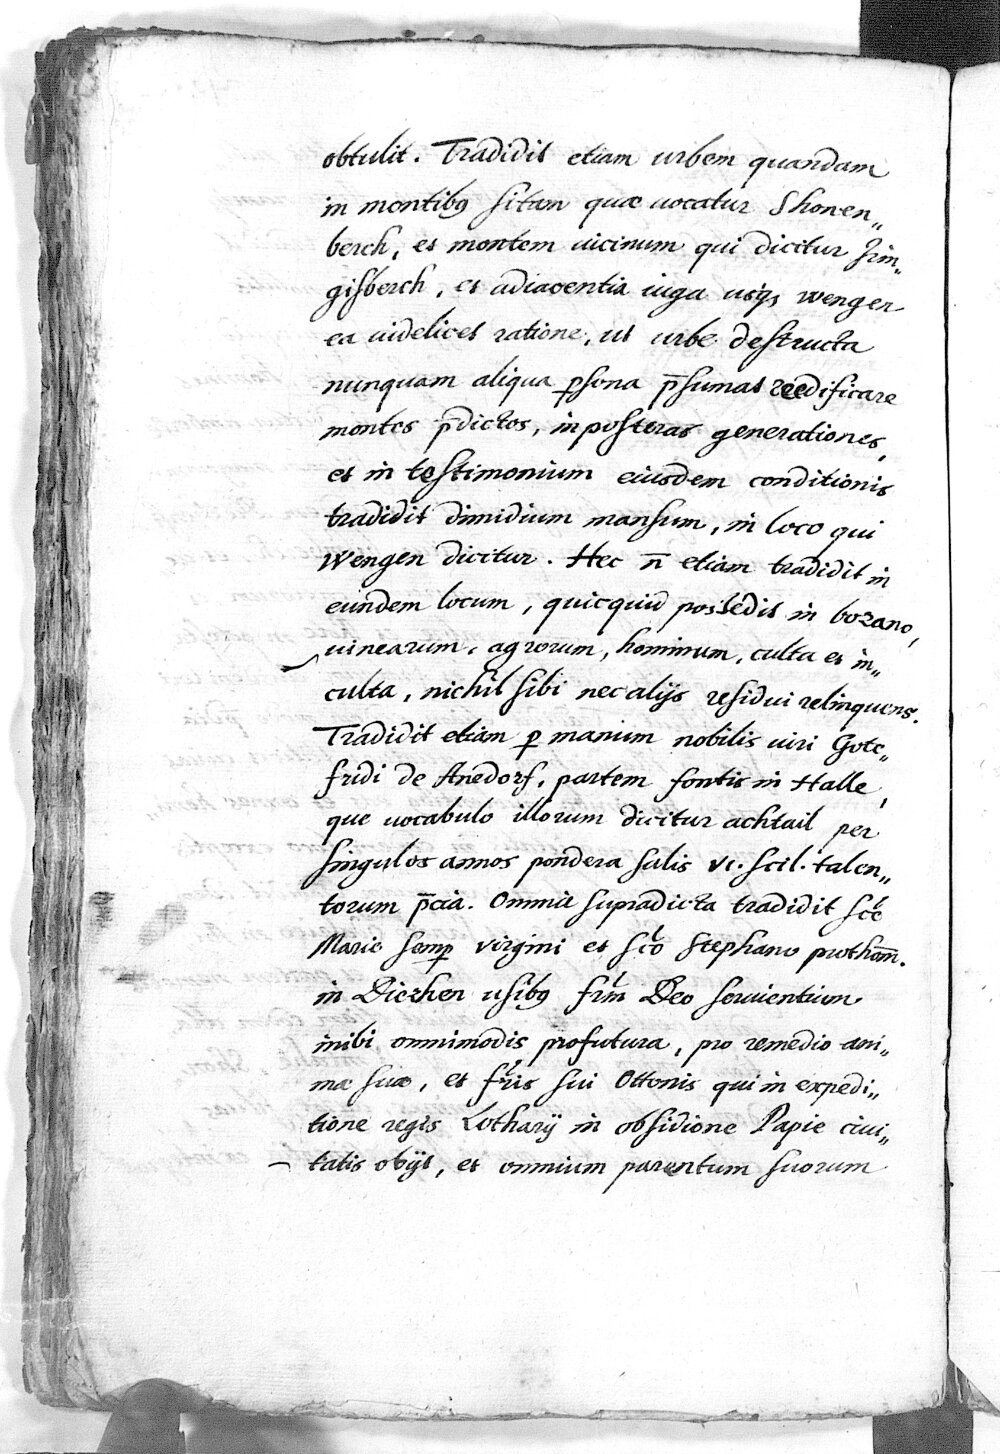 obtulit. Tradidit etiam urbem quandam
in montibꝰ sitam quæ uocatur Shonen„
berch, et montem uicinum qui dicitur Sim„
gisberch, et adiacentia iuga usqꝫ wenger
ea uidelicet ratione, ut urbe destructa
nunquam aliqua ꝑsona p̄sumat reedificare
montes p̄dictos, in posteras generationes,
et in testimonium eiusdem conditionis
tradidit dimidium mansum, in loco qui
Wengen dicitur. Hec n̄ etiam tradidit in
eundem locum, quicquid possedit in bozano,
uinearum, agrorum, hominum, culta et in„
culta, nichil sibi nec alijs residui relinquens.
Tradidit etiam ꝑ manum nobilis uiri Gote„
fridi de Anedorf, partem fontis in Halle,
que uocabulo illorum dicitur achtail per
singulos annos pondera salis vi. scil. talen„
torum p̄cia. Omnia supradicta tradidit scē
Marie semꝑ virgini et scō Stephano prothom̄.
in Diezhen usibꝰ frm̄ Deo seruientium
inibi omnimodis profutura, pro remedio ani„
mæ suæ, et fr̄is sui Ottonis qui in expedi„
tione regis Lotharij in obsidione Papie ciui„
tatis obijt, et omnium parentum suorum